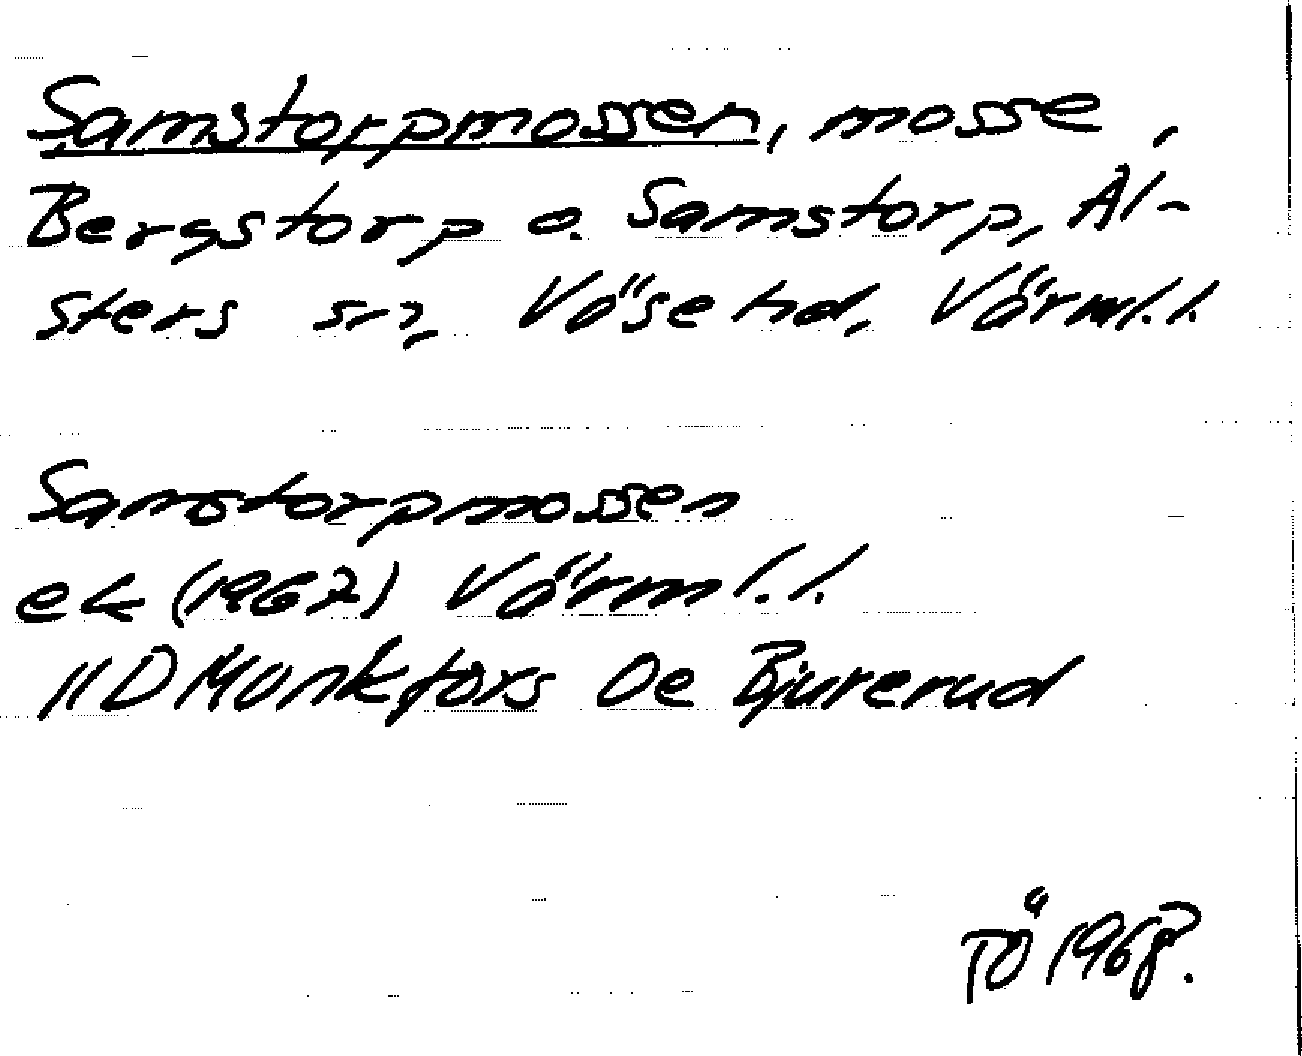 Samstorpmossen, mosse,
Bergstorp o. Samstorp, Al-
sters sn, Väse hd, Värml. l.
Samstorpmossen
ek (1967) Värml. l.
11D Munkfors 0e Bjurerud
TÖ 1968.